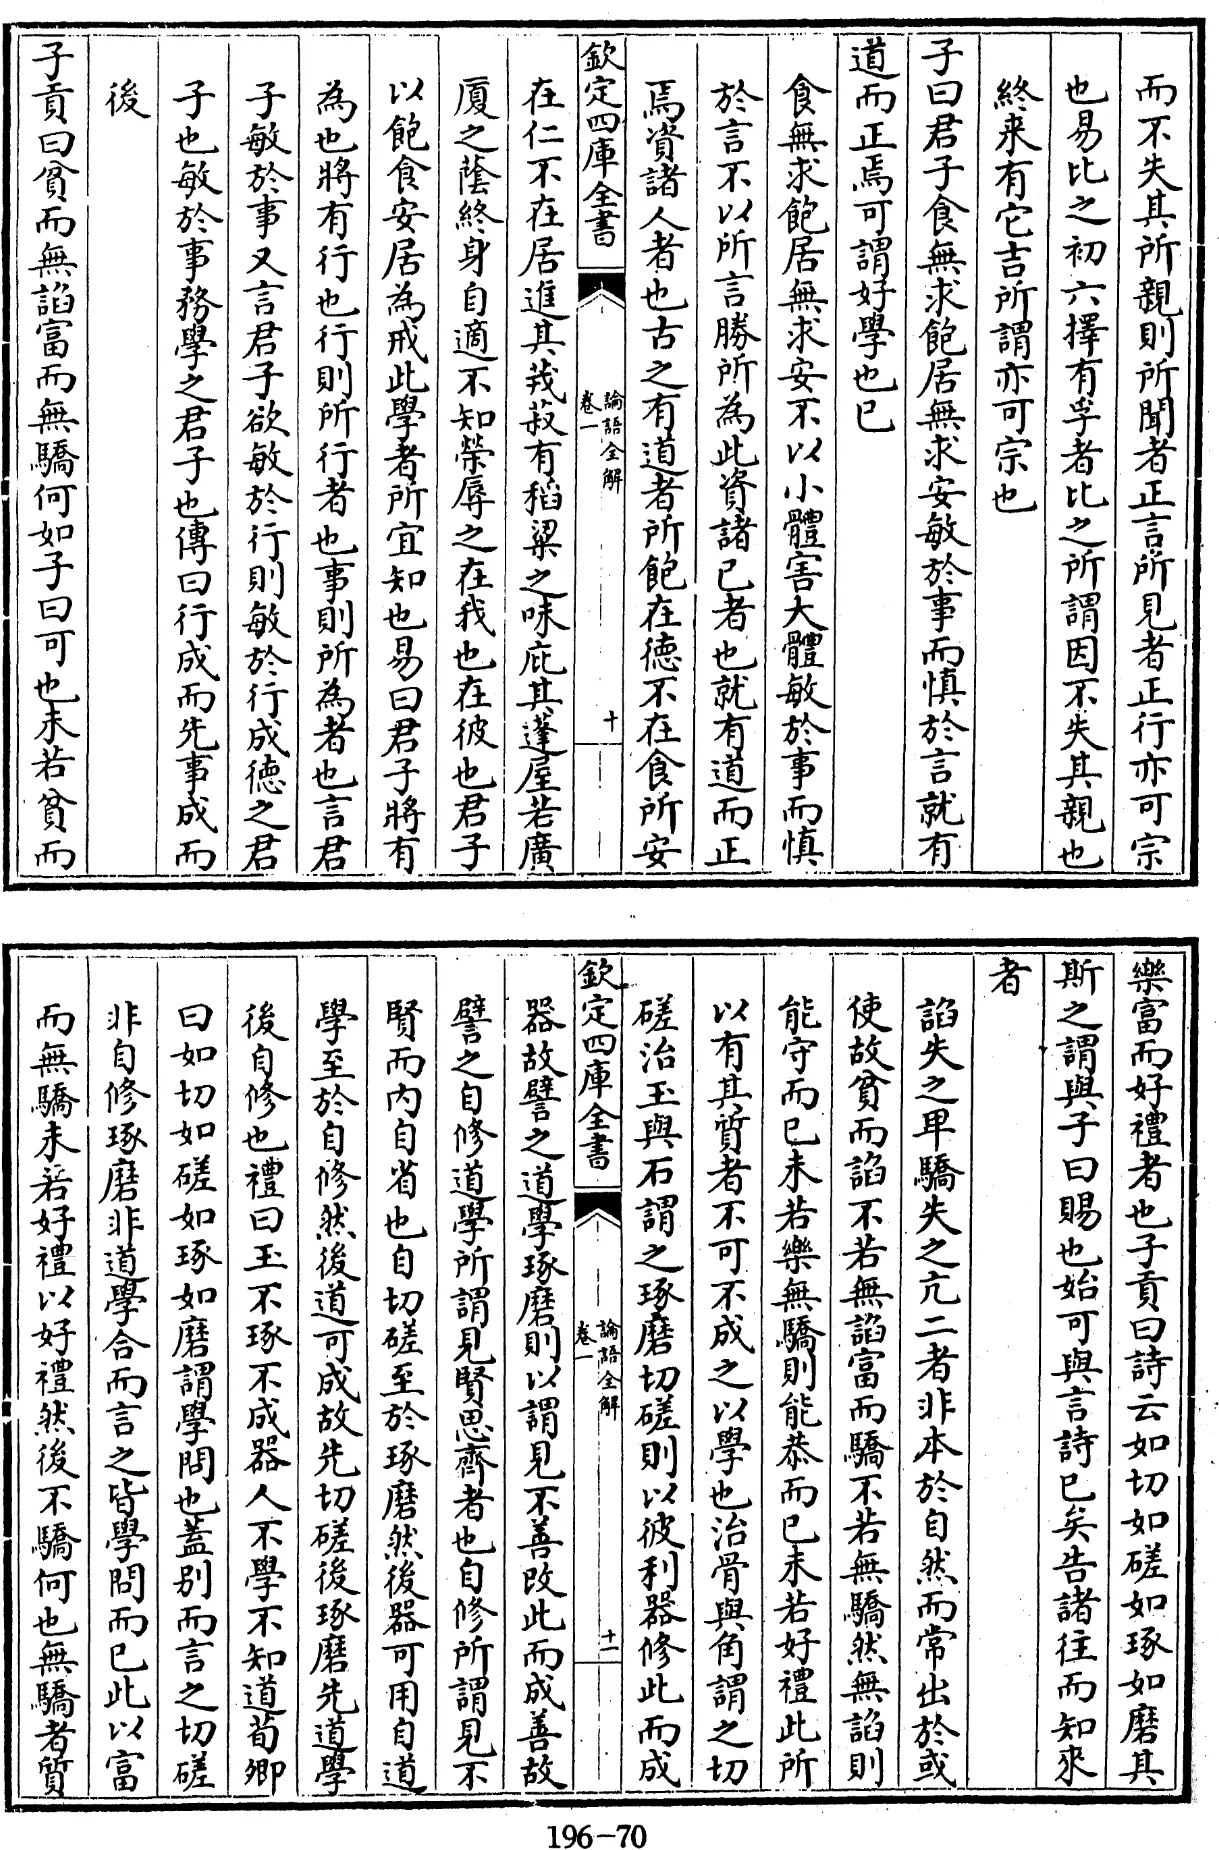 而不失其所親則所聞者正言所見者正行亦可宗
也易比之初六擇有孚者比之所謂因不失其親也
終来有它吉所謂亦可宗也
子曰君子食無求飽居無求安敏於事而慎於言就有
道而正焉可謂好學也已
食無求飽居無求安不以小體害大體敏於事而慎
於言不以所言勝所為此資諸己者也就有道而正
焉資諸人者也古之有道者所飽在德不在食所安
欽定四庫全書
論語全解
卷一
十
在仁不在居進其茙菽有稻粱之味庇其蓬屋若廣
廈之蔭終身自適不知榮辱之在我也在彼也君子
以飽食安居為戒此學者所宜知也易曰君子將有
為也將有行也行則所行者也事則所為者也言君
子敏於事又言君子欲敏於行則敏於行成德之君
子也敏於事務學之君子也傳曰行成而先事成而
後
子貢曰貧而無諂富而無驕何如子曰可也未若貧而
樂富而好禮者也子貢曰詩云如切如磋如琢如磨其
斯之謂與子曰賜也始可與言詩已矣告諸往而知来
者
諂失之卑驕失之亢二者非本於自然而常出於或
使故貧而諂不若無諂富而驕不若無驕然無諂則
能守而已未若樂無驕則能恭而已未若好禮此所
以有其質者不可不成之以學也治骨與角謂之切
磋治玉與石謂之琢磨切磋則以彼利器修此而成
欽定四庫全書
論語全解
卷一
十一
器故譬之道學琢磨則以謂見不善改此而成善故
譬之自修道學所謂見賢思齊者也自修所謂見不
賢而内自省也自切磋至於琢磨然後器可用自道
學至於自修然後道可成故先切磋後琢磨先道學
後自修也禮曰玉不琢不成器人不學不知道荀卿
曰如切如磋如琢如磨謂學問也蓋别而言之切磋
非自修琢磨非道學合而言之皆學問而已此以富
而無驕未若好禮以好禮然後不驕何也無驕者質
196-70